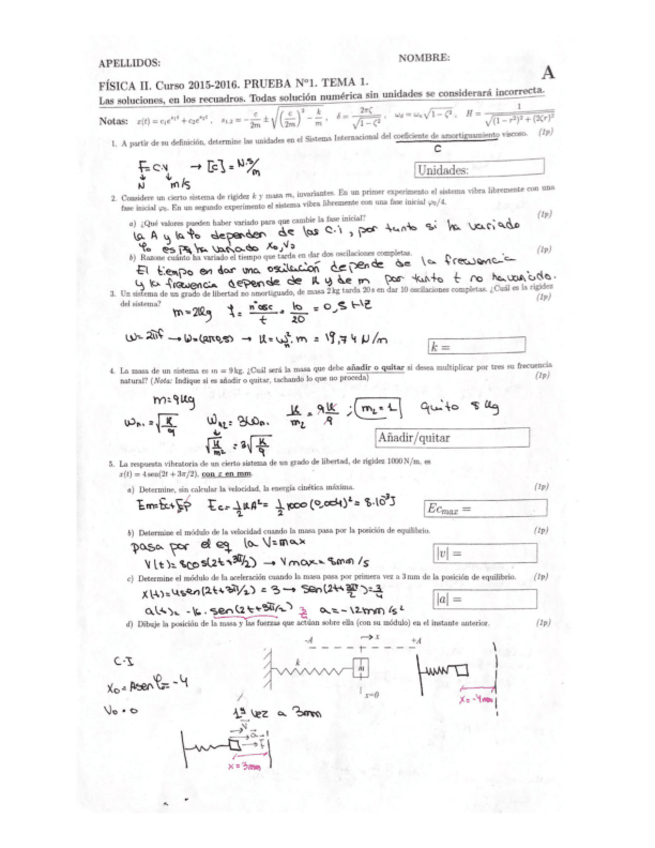 APELLIDOS:
NOMBRE:
A
FÍSICA II. Curso 2015-2016. PRUEBA Nº1. TEMA 1.
Las soluciones, en los recuadros. Todas solución numérica sin unidades se considerará incorrecta.
Notas: x(t) = c₁e^{s₁t} + c₂e^{s₂t}, s₁,₂ = -c/2m ± √((c/2m)² - k/m), δ = 2πζ/√(1-ζ²), ω_d = ω_n√(1-ζ²), H = 1/√((1-r²)² + (2ζr)²)
1. A partir de su definición, determine las unidades en el Sistema Internacional del coeficiente de amortiguamiento viscoso. (2p)
C
F = C·V → [C] = N·s/m
N m/s
Unidades:
2. Considere un cierto sistema de rigidez k y masa m, invariantes. En un primer experimento el sistema vibra libremente con una
fase inicial φ₀. En un segundo experimento el sistema vibra libremente con una fase inicial φ₀/4.
a) ¿Qué valores pueden haber variado para que cambie la fase inicial? (1p)
la A y la φ₀ dependen de las C.i, por tanto si ha variado
φ₀ es pq ha variado x₀, v₀
b) Razone cuánto ha variado el tiempo que tarda en dar dos oscilaciones completas. (1p)
El tiempo en dar una oscilación depende de la frecuencia
y la frecuencia depende de K y de m por tanto t no ha variado.
3. Un sistema de un grado de libertad no amortiguado, de masa 2 kg tarda 20 s en dar 10 oscilaciones completas. ¿Cuál es la rigidez
del sistema? (2p)
m = 2kg f = nº osc/t = 10/20 = 0,5 HZ
ω = 2πf → → K = ω_n²·m = 19,74 N/m
k =
4. La masa de un sistema es m = 9 kg. ¿Cuál será la masa que debe añadir o quitar si desea multiplicar por tres su frecuencia
natural? (Nota: Indique si es añadir o quitar, tachando lo que no proceda) (2p)
m = 9kg
ω_n = √(K/9) ω_n2 = 3ω_n K/m₂ = 9K/9 ; m₂ = 1 quito 8 kg
√(K/m₂) = 3√(K/9)
Añadir/quitar
5. La respuesta vibratoria de un cierto sistema de un grado de libertad, de rigidez 1000 N/m, es
x(t) = 4 sen(2t + 3π/2), con x en mm.
a) Determine, sin calcular la velocidad, la energía cinética máxima. (1p)
Em = Ec + Ep Ec = ½KA² = ½ 1000 (0,004)² = 8·10⁻³ J
Ec_max =
b) Determine el módulo de la velocidad cuando la masa pasa por la posición de equilibrio. (1p)
pasa por el eq la V = max
V(t) = 8cos(2t + 3π/2) → Vmax = 8mm/s
|v| =
c) Determine el módulo de la aceleración cuando la masa pasa por primera vez a 3 mm de la posición de equilibrio. (1p)
x(t) = 4sen(2t + 3π/2) = 3 → sen(2t + 3π/2) = 3/4
a(t) = -16·sen(2t + 3π/2) 3/4 a = -12mm/s²
|a| =
d) Dibuje la posición de la masa y las fuerzas que actúan sobre ella (con su módulo) en el instante anterior. (1p)
-A → x +A
k m
x=0
C·I
x₀ = A sen φ₀ = -4
V₀ = 0
x = -4mm
1ª vez a 3mm
V
a
F
x = 3mm